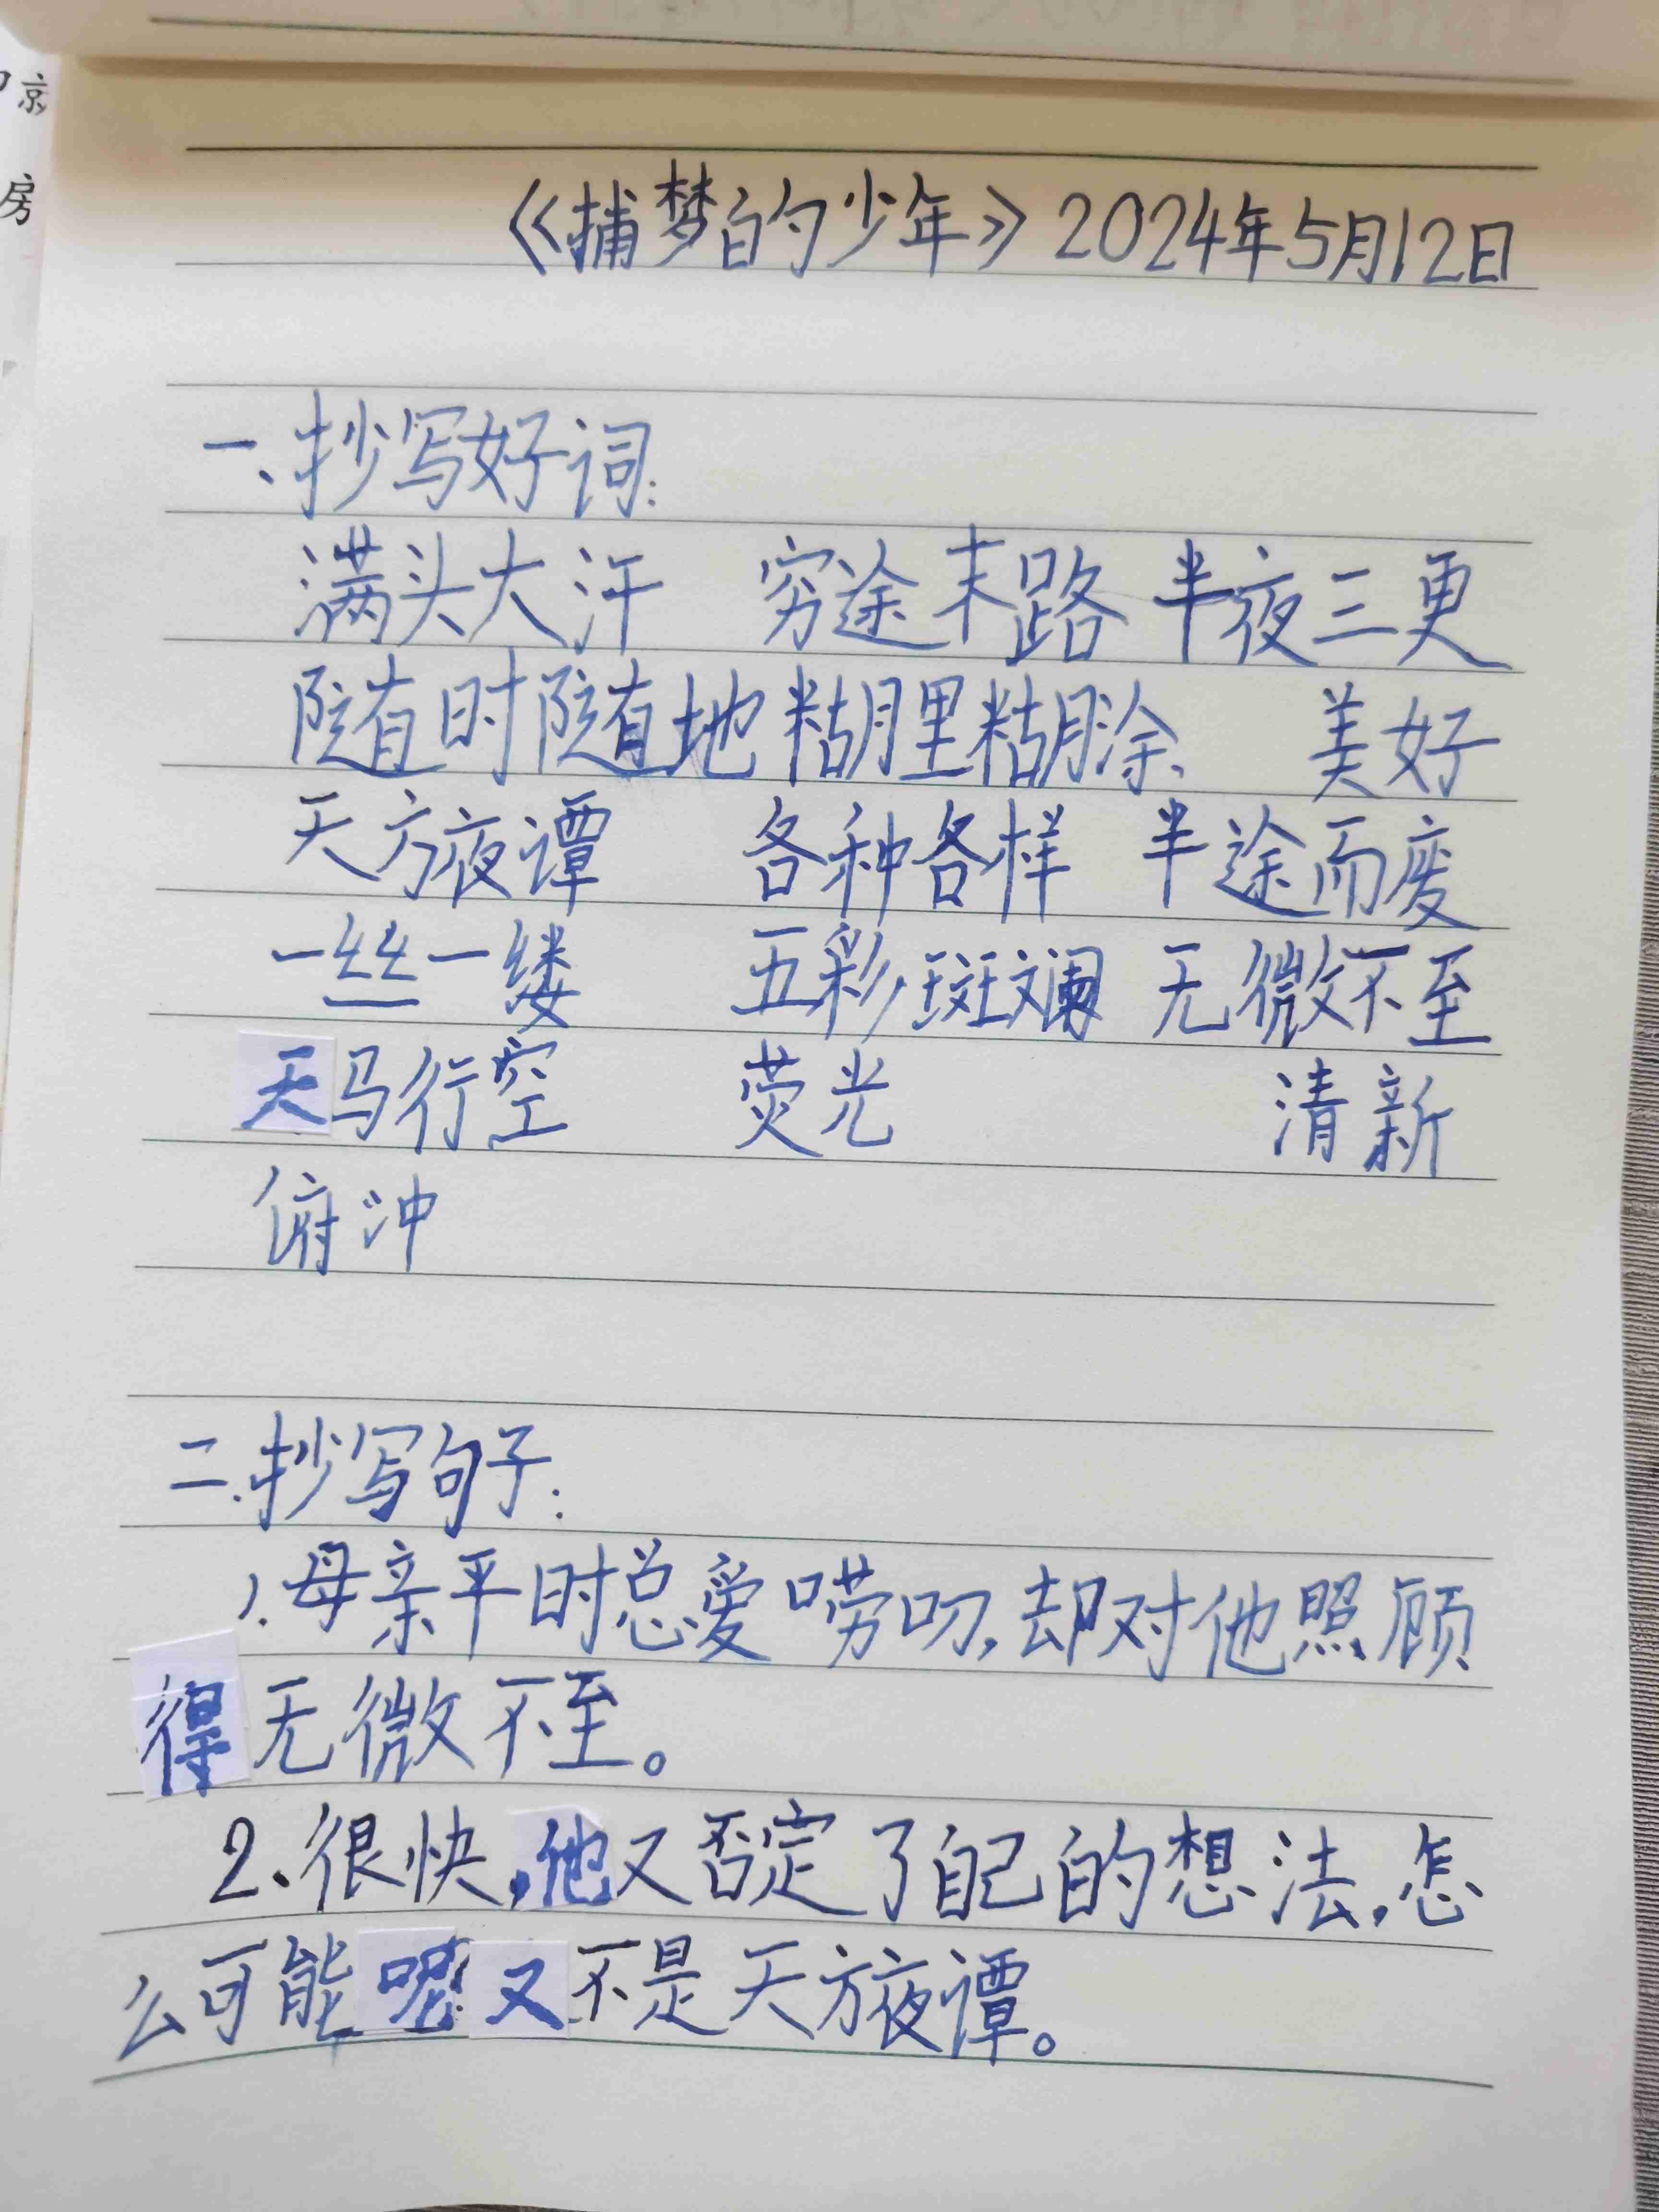 京
房
《捕梦的少年》2024年5月12日
一、抄写好词:
满头大汗 穷途末路 半夜三更
随时随地 糊里糊涂 美好
天方夜谭 各种各样 半途而废
一丝一缕 五彩斑斓 无微不至
天马行空 荧光 清新
俯冲
二.抄写句子:
1.母亲平时总爱唠叨,却对他照顾
得无微不至。
2、很快,他又否定了自己的想法,怎
么可能呢又不是天方夜谭。